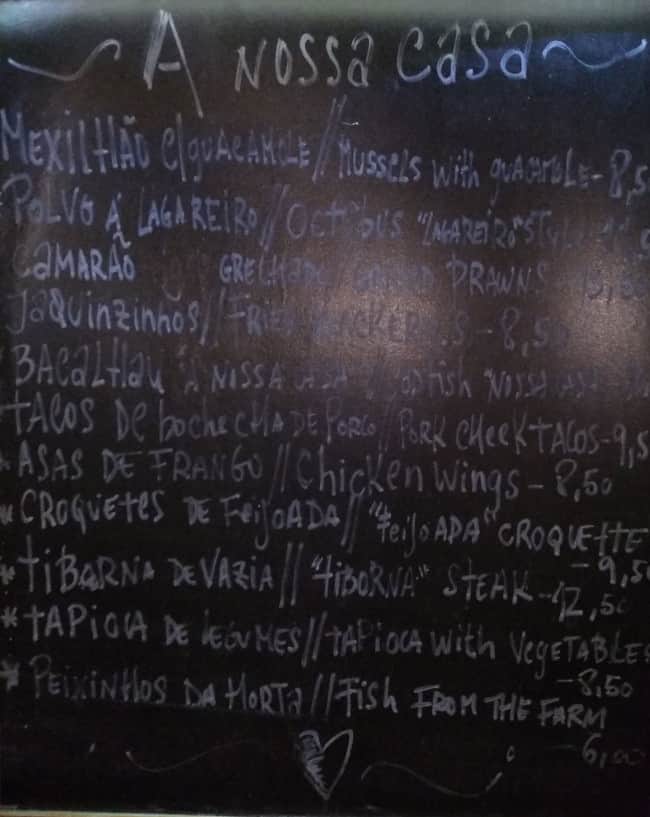 A NOSSA CASA
MEXILHÃO C/GUACAMOLE // MUSSELS WITH GUACAMOLE - 8,5
POLVO Á LAGAREIRO // OCTOPUS "LAGAREIRO" STYLE
CAMARÃO GRELHADO PRAWNS
JAQUINZINHOS // FRIED - 8,50
BACALHAU À NOSSA CASA // NOSSA CASA
TACOS DE BOCHECHA DE PORCO // PORK CHEEK TACOS - 9,5
* ASAS DE FRANGO // CHICKEN WINGS - 8,50
* CROQUETES DE FEIJOADA // "FEIJOADA" CROQUETTE
- 9,50
* TIBORNA DE VAZIA // "TIBORNA" STEAK - 12,50
* TAPIOCA DE LEGUMES // TAPIOCA WITH VEGETABLES
- 8,50
* PEIXINHOS DA HORTA // FISH FROM THE FARM
- 6,00